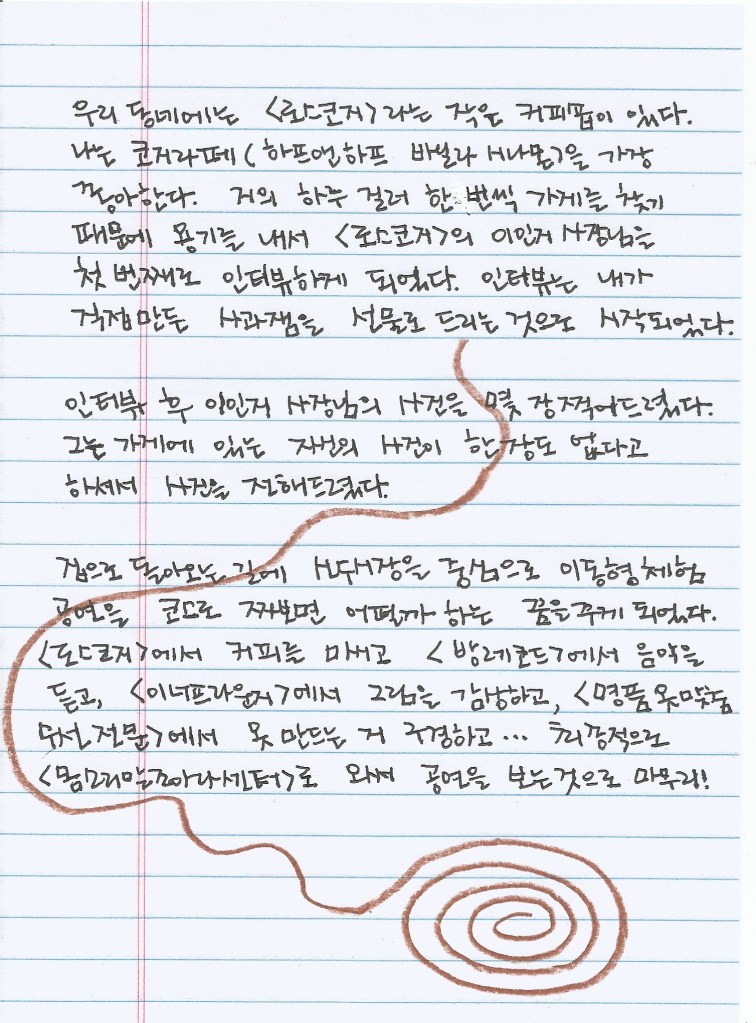 우리 동네에는 <로스코지>라는 작은 커피팝이 있다.
나는 코지라떼(하프앤하프 바닐라 시나몬)을 가장
좋아한다. 거의 하루 걸러 한 번씩 가게를 찾기
때문에 용기를 내서 <로스코지>의 이민지 사장님을
첫 번째로 인터뷰하게 되었다. 인터뷰는 내가
직접만든 사과잼을 선물로 드리는 것으로 시작되었다.
인터뷰 후 이민지 사장님의 사진을 몇 장 찍어드렸다.
그는 가게에 있는 자신의 사진이 한 장도 없다고
하셔서 사진을 전해드렸다.
집으로 돌아오는 길에 시장을 중심으로 이동형체험
공연을 코스로 짜보면 어떨까 하는 꿈을꾸게 되었다.
<로스코지>에서 커피를 마시고 <방레코드>에서 음악을
듣고, <이너프라운지>에서 그림을 감상하고, <명품옷
수선 전문>에서 옷 만드는 거 구경하고... 최종적으로
로 와서 공연을 보는것으로 마무리!